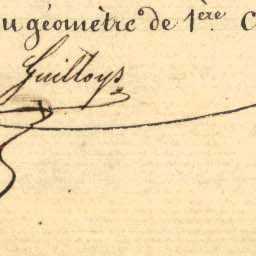 u géomètre de 1ère C
Guilloys